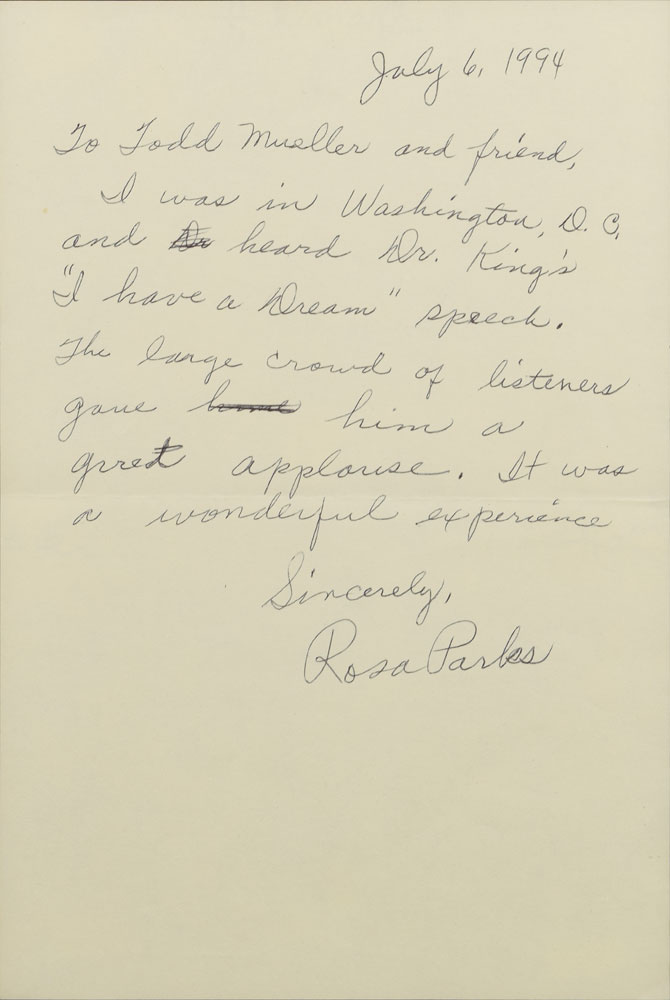 July 6, 1994
To Todd Mueller and friend,
I was in Washington, D.C,
and Dr heard Dr. King's
"I have a Dream" speech.
The large crowd of listeners
gave him a
gret applouse. It was
a wonderful experience
Sincerely,
Rosa Parks